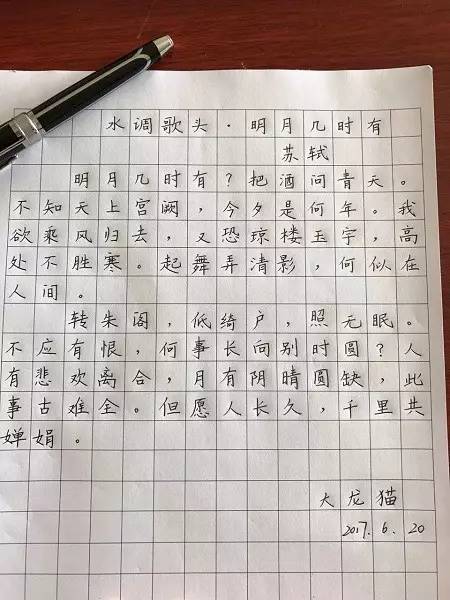 水调歌头·明月几时有
苏轼
明月几时有？把酒问青天。
不知天上宫阙，今夕是何年。我
欲乘风归去，又恐琼楼玉宇，高
处不胜寒。起舞弄清影，何似在
人间。
转朱阁，低绮户，照无眠。
不应有恨，何事长向别时圆？人
有悲欢离合，月有阴晴圆缺，此
事古难全。但愿人长久，千里共
婵娟。
大龙猫
2017.6.20